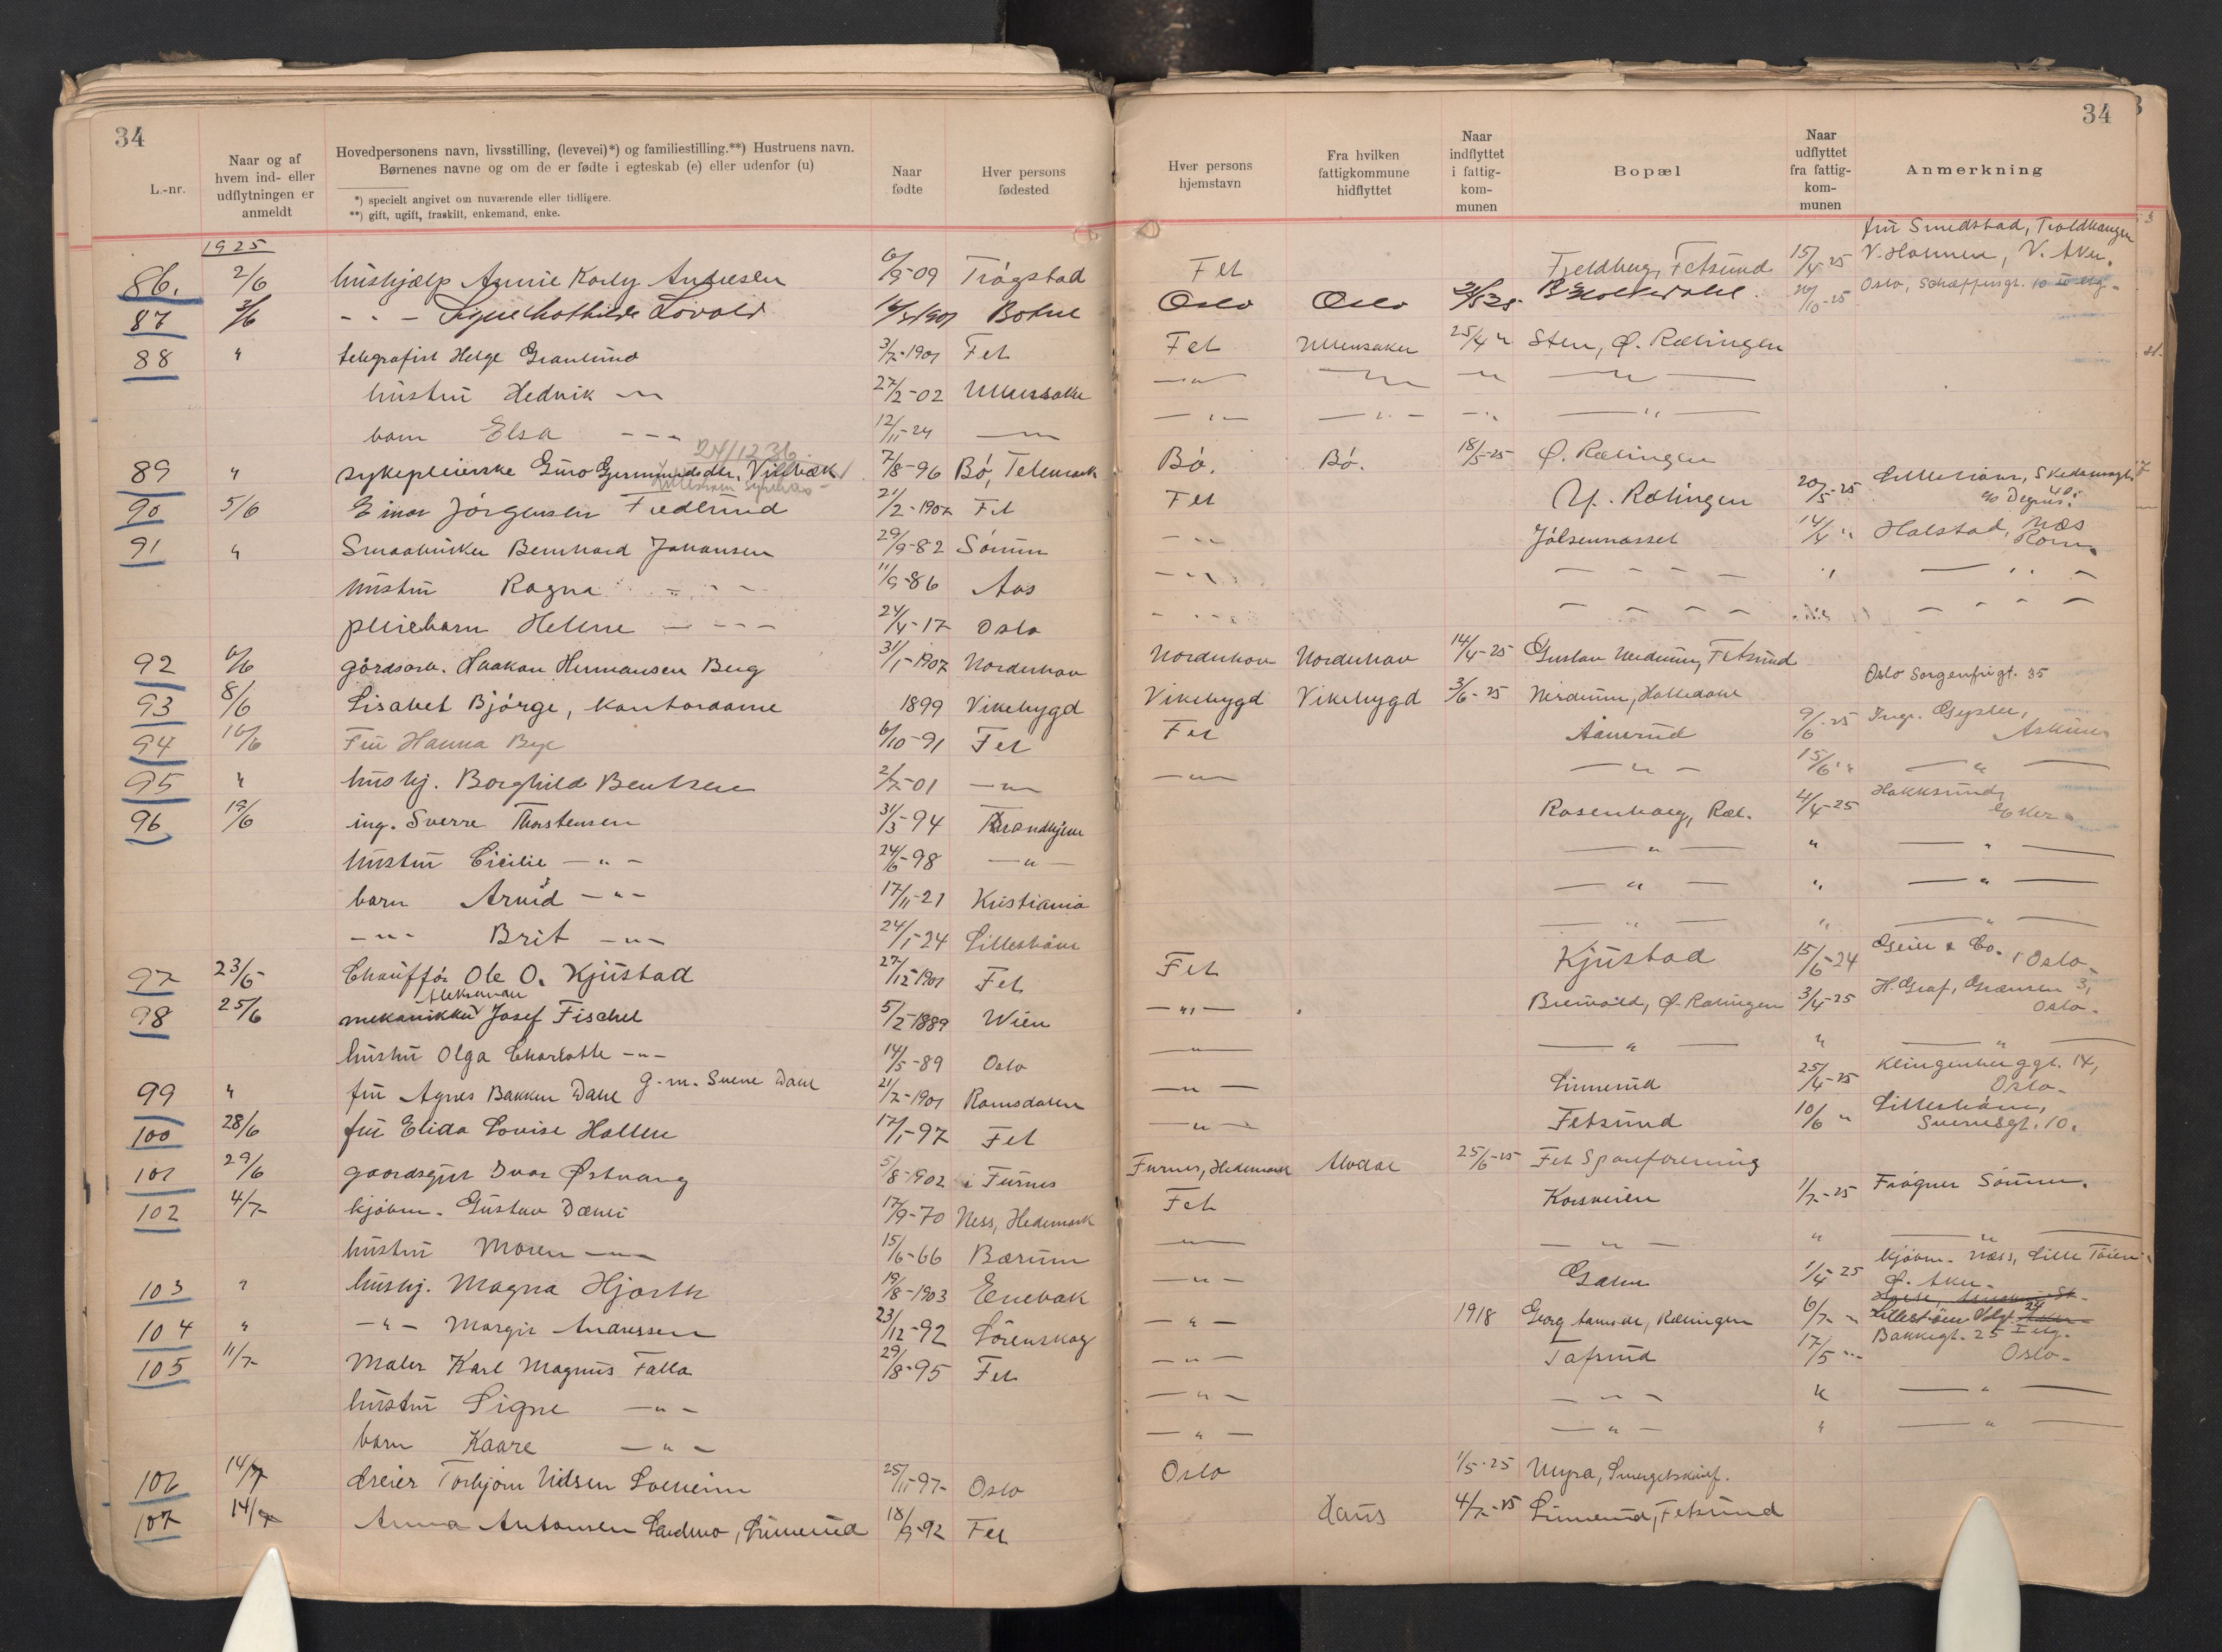 34
L.-nr.
Naar og af hvem ind- eller udflytningen er anmeldt
Hovedpersonens navn, livsstilling, (levevei)*) og familiestilling.**) Hustruens navn.
Børnenes navne og om de er fødte i egteskab (e) eller udenfor (u)
*) specielt angivet om nuværende eller tidligere.
**) gift, ugift, fraskilt, enkemand, enke.
Naar fødte
Hver persons fødested
Hver persons hjemstavn
Fra hvilken fattigkommune hidflyttet
Naar indflyttet i fattig-kom-munen
Bopæl
Naar udflyttet fra fattig-kom-munen
Anmerkning
34
1925
86. 2/6 hushjælp Annie Karly Andresen 6/9-09 Trøgstad Fet Fjeldberg, Fetsund 15/4-25 fru Smedstad, V. Holmen, V. Aker.
87 2/6 - " - Signe Mathilde Løvold Oslo Oslo 20/10-25 Oslo,
88 " telegrafist Helge Granlund 3/7-1901 Fet Fet Ullensaker 25/4 " Sten, Ø. Rælingen
hustru Hedvik - " - 27/2-02 Ullensaker - " - - " - - " - - " -
barn Elsa - - - 12/11-24 - " - - " - - " - - " - - " -
24/12 36
89 " sykepleierske Guro Gjermundsdtr. Villbæk 7/8-96 Bø, Telemark Bø. Bø. 18/5-25 Ø. Rælingen
90 5/6 Einar Jørgensen Fredlund 21/2-1907 Fet Fet Y. Rælingen 20/5-25 Lillestrøm, Skedsmogt. 40.
91 " Smaabruker Bernhard Johansen 29/9-82 Sørum - " - Jølsennasset 14/4 " Halstad, Næs Rom.
hustru Ragna - " - 11/9-86 Aas - " - - - - - " - " -
pleiebarn Helene - - - - 24/4-17 Oslo - - - - - - - - - - - -
92 6/6 gårdsarb. Haakon Hermansen Berg 31/1-1907 Norderhov Norderhov Norderhov 14/4-25 Gustav Nerdrum, Fetsund
93 8/6 Lisabet Bjørge, kontordame 1899 Vikebygd Vikebygd Vikebygd 3/6-25 Nerdrum, Halledahl Oslo Sorgenfrigt. 35
94 10/6 Fru Hanna Bye 6/10-91 Fet Fet Åmerud 9/6-25 Ingr. Askim
95 " hushj. Borghild Bentsen 2/7-01 - " - - " - - " - 15/6 " - " -
96 19/6 ing. Sverre Thorstensen 31/3-94 Trondhjem Rosenborg, Ræl. 4/4-25 Hokksund, Eker.
hustru Cicilie - " - 24/6-98 - " - - " - " - " -
barn Arvid - " - 17/11-21 Kristiania - " - " - " -
- " - Brit - " - 24/1-24 Lillestrøm - " - " - " -
97 23/6 Chauffør Ole O. Kjustad 27/12-1901 Fet Fet Kjustad 15/6-24 Geier & Co. i Oslo.
98 25/6 mekanikker Josef Fischel 5/2-1889 Wien - " - Breivold, Ø. Rælingen 3/4-25 H. Graf, Grænsen 3, Oslo.
hustru Olga Charlotte - " - 14/5-89 Oslo - " - - " - " - " -
99 " fru Agnes Bakken Dahl g. m. Svene Dahl 21/7-1901 Romsdalen - " - Linnerud 25/4-25 Klingenberggt. 14, Oslo.
100 28/6 fru Elida Lovise Hallen 17/1-97 Fet - " - Fetsund 10/6 " Lillestrøm, Sverresgt. 10.
101 29/6 gaardsgut Ivar Østvang 5/8-1902 i Furnes Furnes, Hedemark Alvdal 25/6-25 Fet Spareforening
102 4/7 kjøbm. Gustav Dæhli 17/9-70 Ness, Hedemark Fet Korsveien 1/7-25 Frogner Sørum.
hustru Maren - " - 15/6-66 Bærum - " - - " - " - " -
103 " hushj. Magna Hjorth 19/8-1903 Enebak - " - Garn 1/4-25 kjøbm. Næss, Lille Tøien Ø. Aker.
104 " - " - Margit Andressen 23/12-92 Lørenskog - " - 1918 Georg Aamodt, Rælingen 6/7 - Lillestrøm 24
105 11/7 Maler Karl Magnus Falla 29/8-95 Fet - " - Tafsrud 17/5 " Bakkegt. 25 I etg. Oslo.
hustru Signe - " - - " - - " - " - " -
barn Kaare - " - - " - - " - " - " -
106 14/7 dreier Torbjørn Nilsen Solheim 25/11-97 Oslo Oslo 1/5-25 Myra, Smergelskivf.
107 14/7 Anna Antonsen Sandmo, Linnerud 18/9-92 Fet Haus 4/7-25 Linnerud, Fetsund